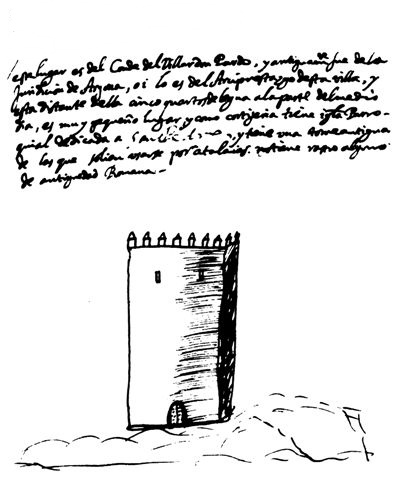 este lugar es del Cōde del Villardon Pardo, y antiguamᵗᵉ fue de la
Juridicion de Arjona, oi lo es del Arciprestazgo desta villa, y
esta distante della cinco quartos de legua a la parte del medio
dia, es muy pequeño lugar, y como cortijeria tiene iglᵃ Parro-
quial dedicada a y tiene una torre antigua
de las que solian usarse por atalaias. no tiene rastro alguno
de antiguedad Romana.-